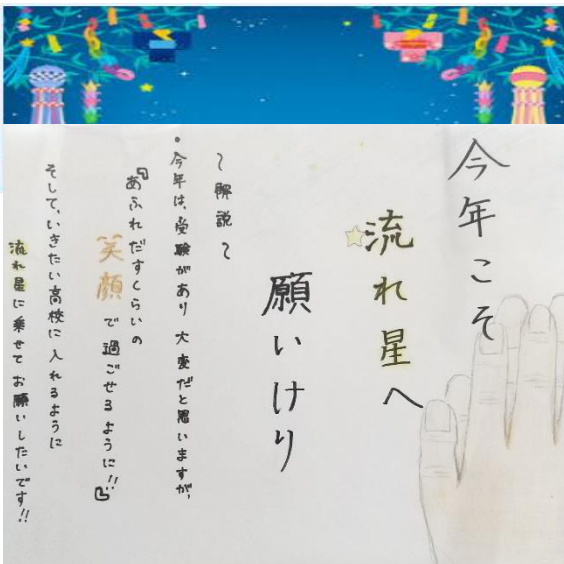 今年こそ
流れ星へ
願いけり
〜解説〜
・今年は、受験があり大変だと思いますが、
『あふれだすくらいの
笑顔で過ごせるように!!』
そして、いきたい高校に入れるように
流れ星に乗せてお願いしたいです!!